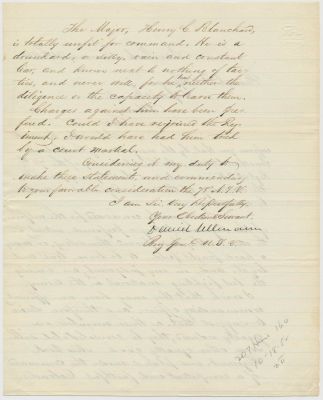 The Major, Henry C. Blanchard,
is totally unfit for command. He is a
drunkard, a silly, vain and constant
liar, and knows next to nothing of tac
tics, and never will, for he has neither the
diligence or the capacity to learn them.
Charges against him have been pre
ferred. Could I have rejoined the Reg
iment, I would have had him tried
by a court martial.
Considering it my duty to
make these statements, and commending
to your favorable consideration the 78 N.Y.V.
I am Sir, Very Respectfully
Your Obedient Servant.
Daniel Ullmann
Brig Gen U.S.